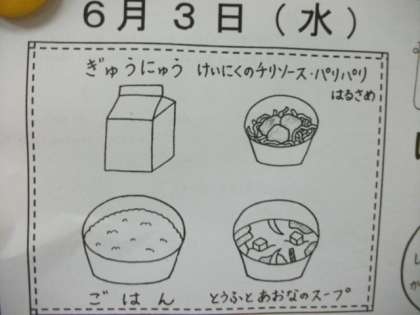 6月3日(水)
ぎゅうにゅう けいにくのチリソース・パリパリ
はるさめ
ごはん とうふとあおなのスープ